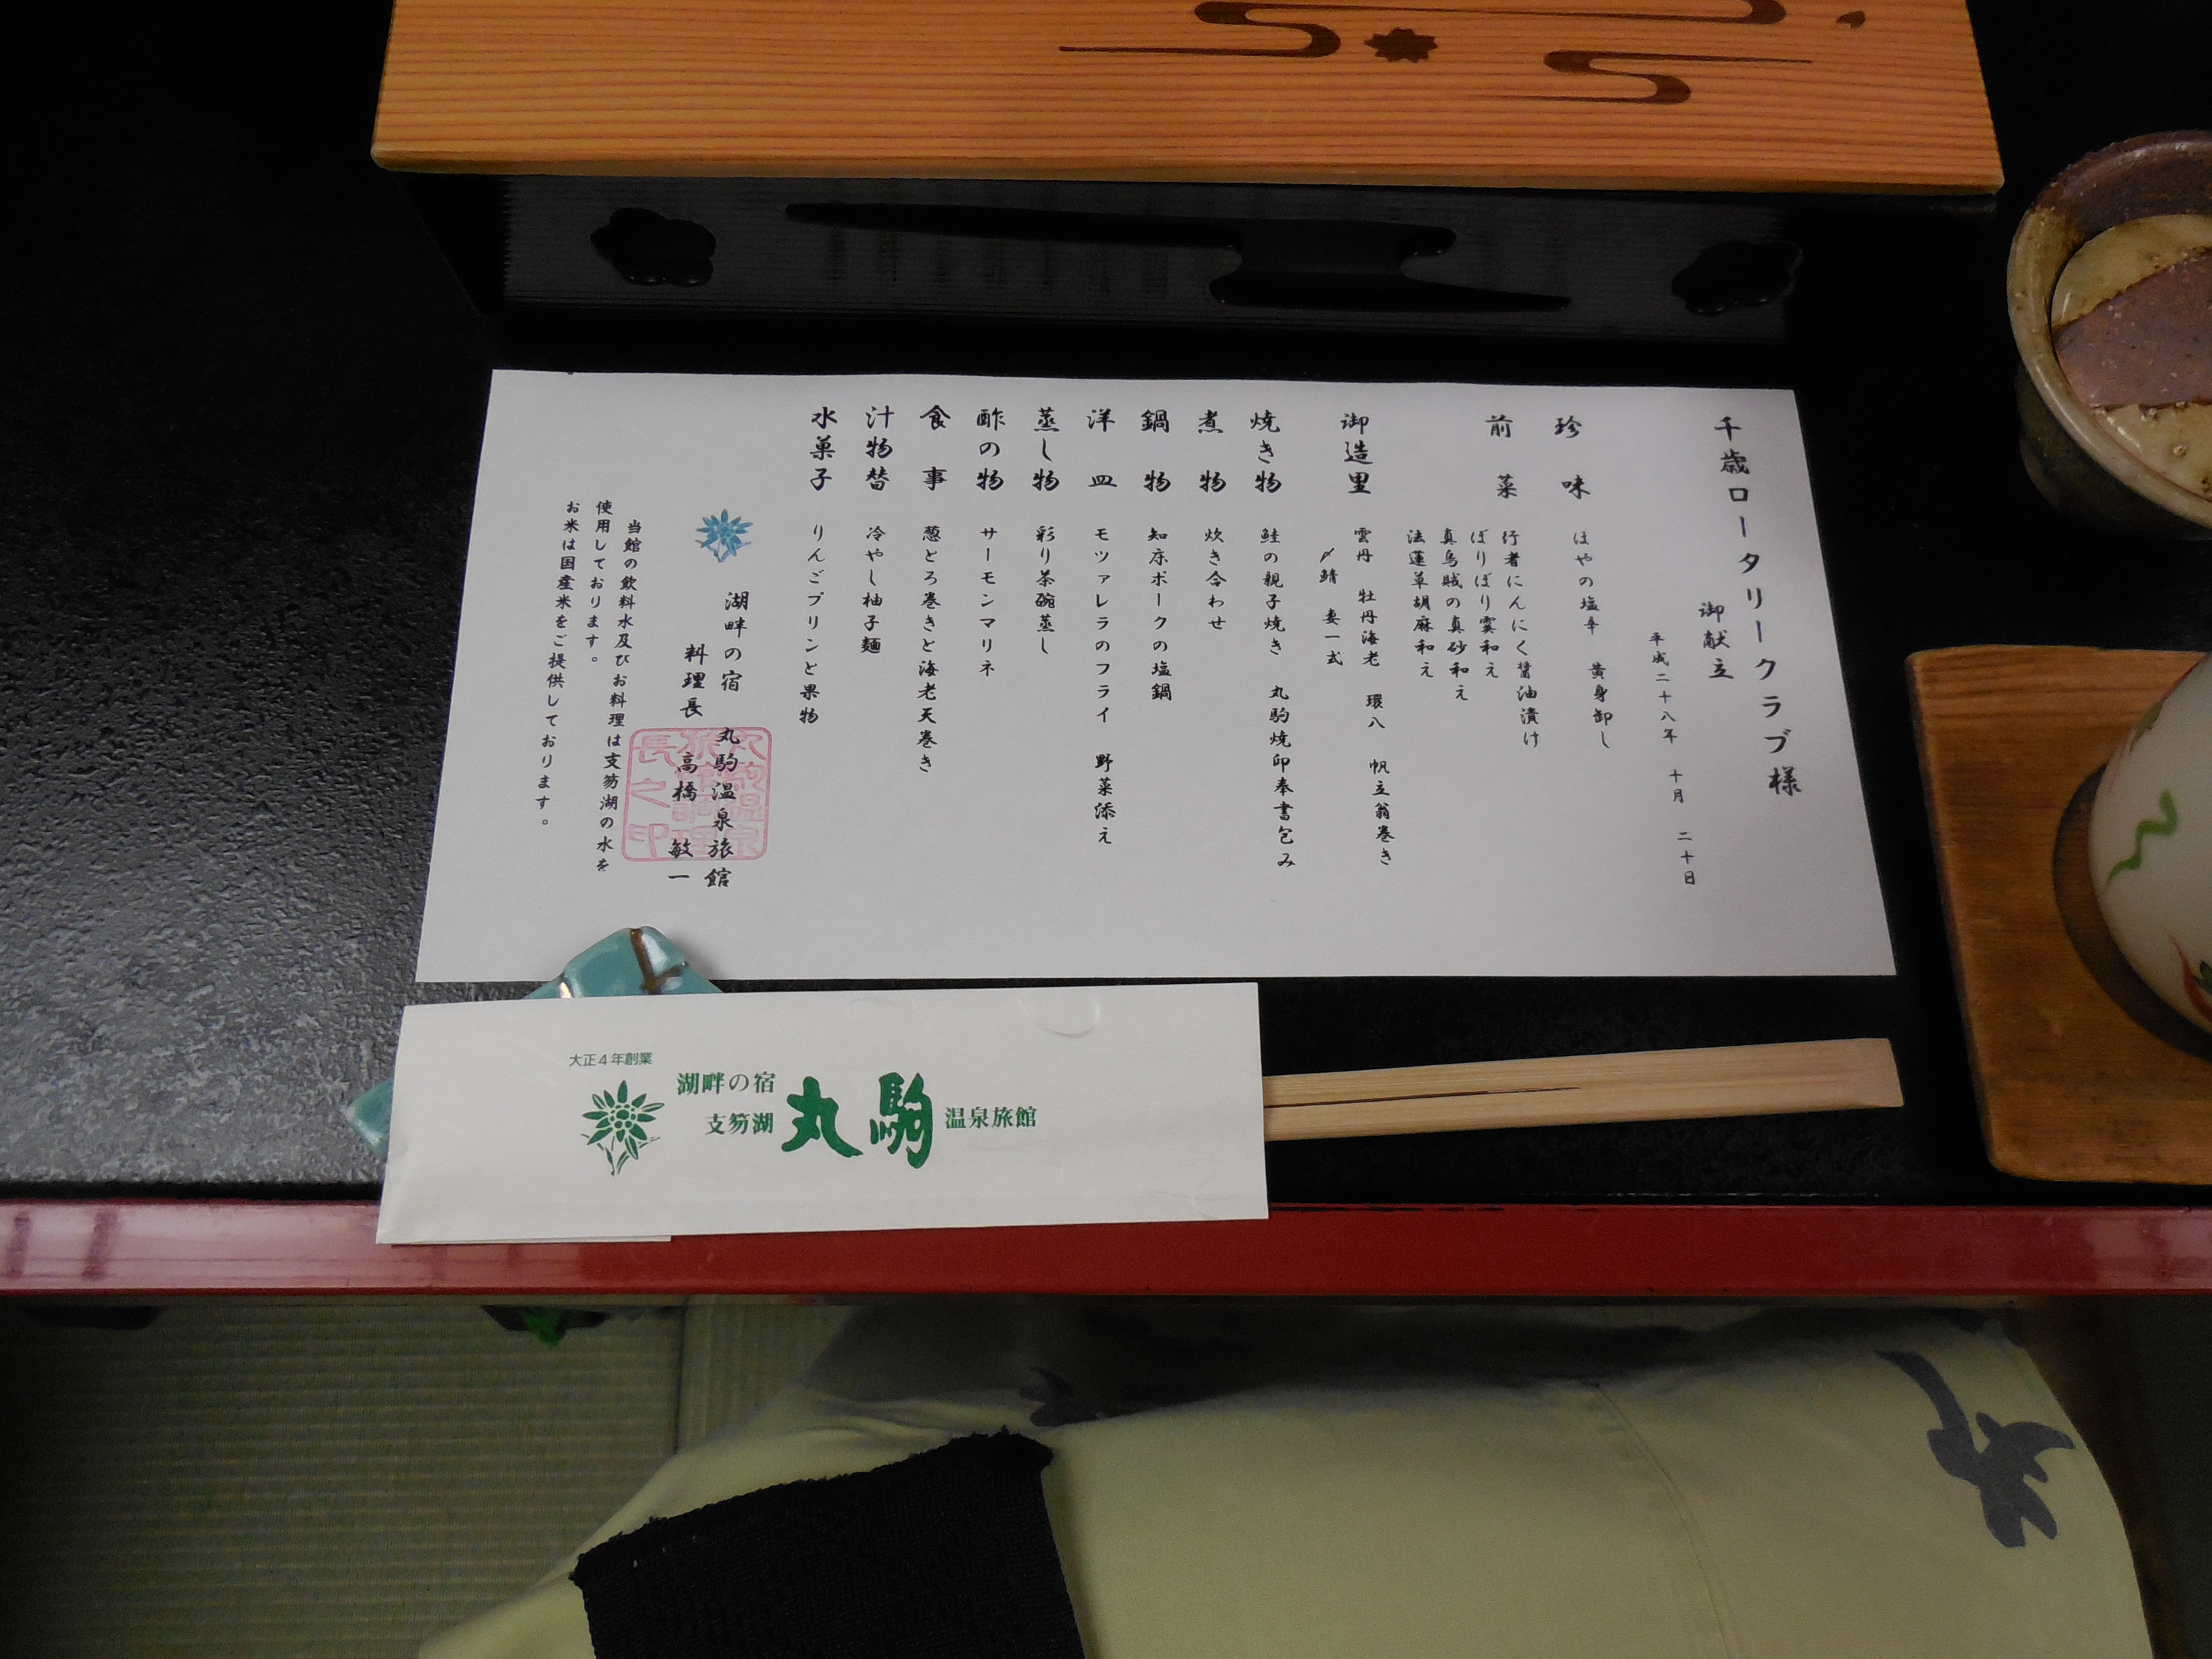 千歳ロータリークラブ様
御献立
平成二十八年 十月 二十日
珍味 ほやの塩辛 黄身卸し
前菜 行者にんにく醤油漬け
ぼりぼり霙和え
真烏賊の真砂和え
法蓮草胡麻和え
御造里 雲丹 牡丹海老 環八 帆立翁巻き
〆鯖 妻一式
焼き物 鮭の親子焼き 丸駒焼印奉書包み
煮物 炊き合わせ
鍋物 知床ポークの塩鍋
洋皿 モツァレラのフライ 野菜添え
蒸し物 彩り茶碗蒸し
酢の物 サーモンマリネ
食事 葱とろ巻きと海老天巻き
汁物替 冷やし柚子麺
水菓子 りんごプリンと果物
湖畔の宿 丸駒温泉旅館
料理長 高橋 敏一
当館の飲料水及びお料理は支笏湖の水を
使用しております。
お米は国産米をご提供しております。
大正4年創業
湖畔の宿
支笏湖 丸駒 温泉旅館